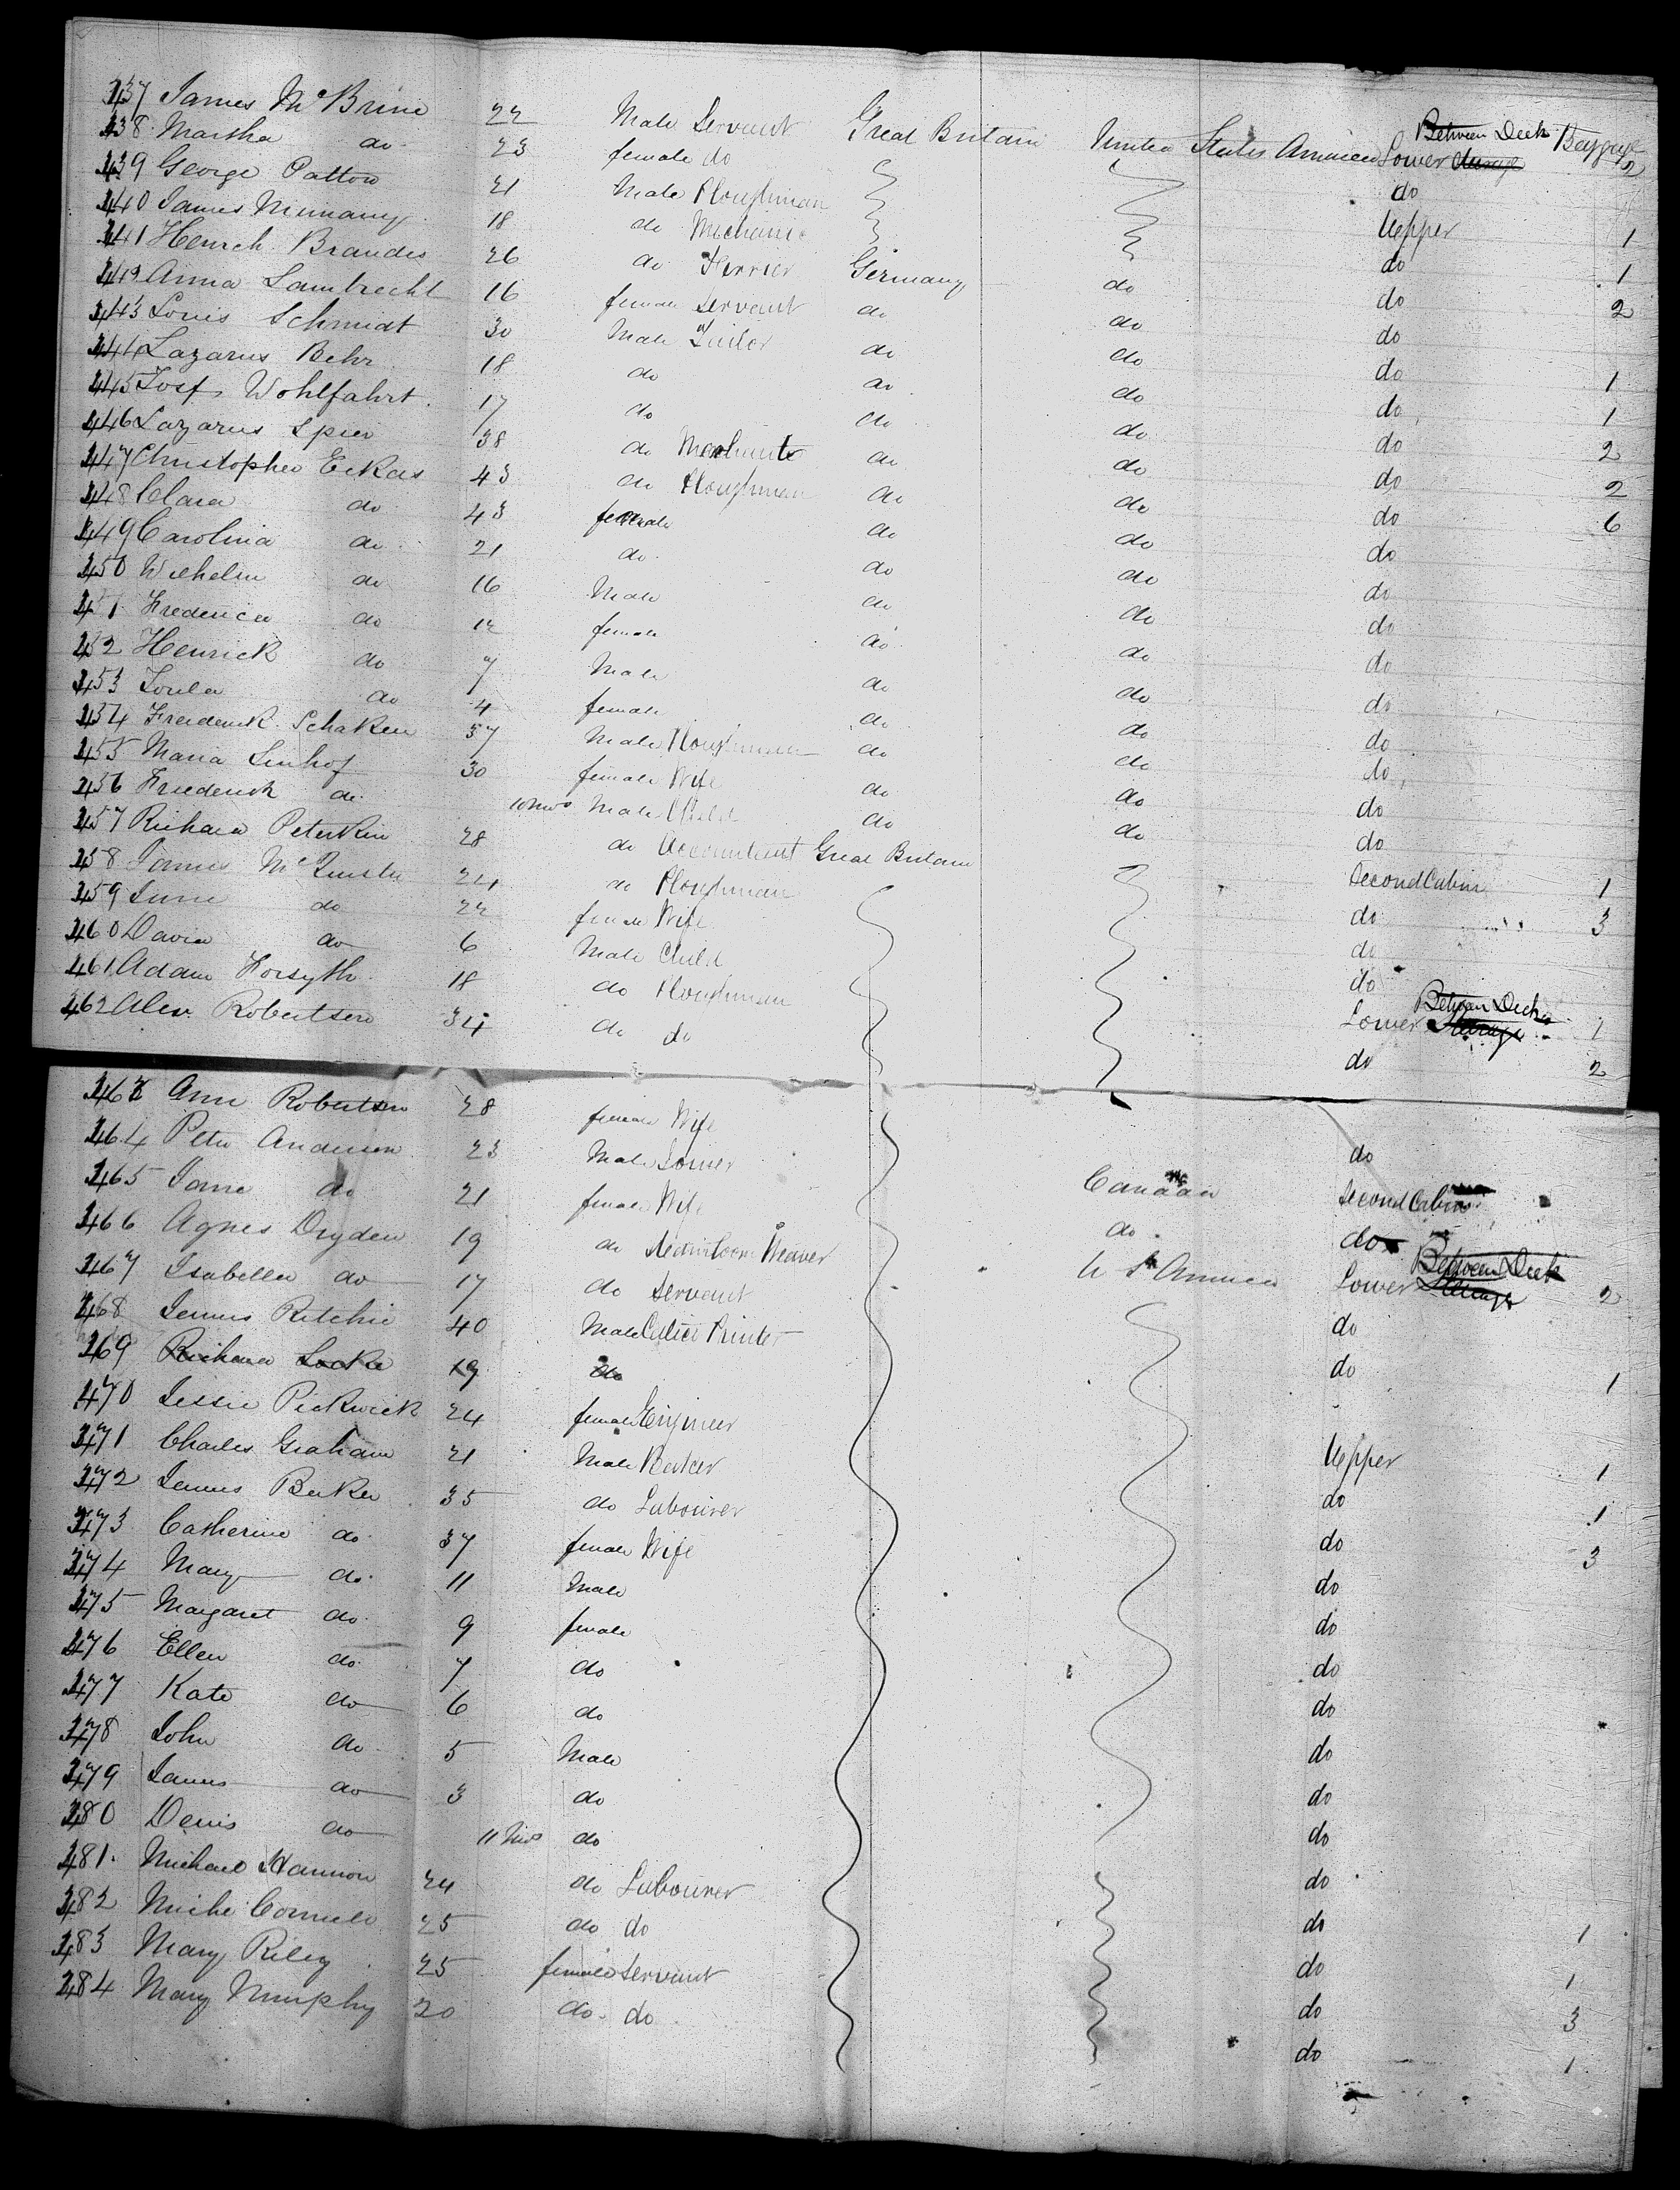 Between Deck Baggage
437 James McBrine 22 Male Servant Great Britain United States America Lower 2
438 Martha do 23 female do do
439 George Patton 21 Male Ploughman Upper 1
440 James 18 do Mechanic do 1
441 Henrch Brandis 26 do Germany do do 2
442 Anna Lambrecht 16 female Servant do do do
443 Louis Schmidt 30 Male Tailor do do do 1
444 Lazarus Behr 18 do do do do 1
445 Josef Wohlfahrt 17 do do do do 2
446 Lazarus Spier 38 do do do do 2
447 Christopher Eckas 43 do Ploughman do do do 6
448 Clara do 43 female do do do
449 Carolina do 21 do do do do
450 Wilhelm do 16 Male do do do
451 Frederica do 12 female do do do
452 Henrick do 7 Male do do do
453 do 4 female do do do
454 Frederick Schaken 57 Male Ploughman do do do
455 Maria Linhof 30 female Wife do do do
456 Friederich do 10 mos Male Child do do do
457 Richard Peterkin 28 do Accountant Great Britain Second Cabin 1
458 James 24 do Ploughman do 3
459 do 22 female Wife do
460 David do 6 Male Child do
461 Adam Forsyth 18 do Ploughman Lower Between Deck 1
462 Alex. Robertson 34 do do do 2
463 Ann Robertson 28 female Wife do
464 Peter Anderson 23 Male Canada Second Cabin
465 Jane do 21 female Wife do do
466 Agnes Dryden 19 do Steamloom Weaver U S America Lower Between Deck 2
467 Isabella do 17 do Servant do
468 James Ritchie 40 Male Calico Printer do 1
469 Richard Locke 19 do
470 Jessie Pickwick 24 female Engineer Upper 1
471 Charles Graham 21 Male Baker do 1
472 James Barker 35 do Labourer do 3
473 Catherine do 37 female Wife do
474 Mary do 11 Male do
475 Margaret do 9 female do
476 Ellen do 7 do do
477 Kate do 6 do do
478 John do 5 Male do
479 James do 3 do do
480 Denis do 11 Mos do do
481 Michael Hannon 24 do Labourer do 1
482 25 do do do 1
483 Mary Riley 25 female Servant do 3
484 Mary Murphy 20 do do do 1